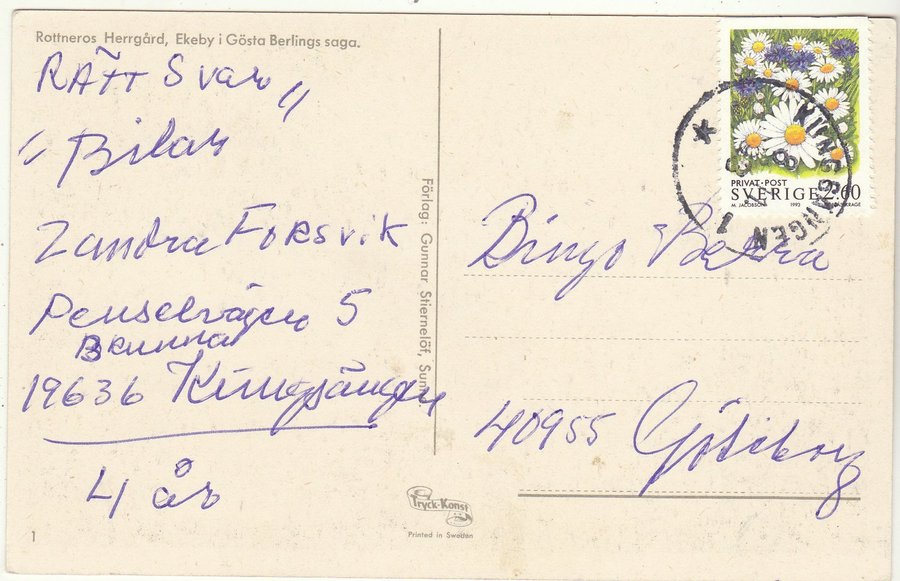 Rottneros Herrgård, Ekeby i Gösta Berlings saga.
RÄTT Svar "
" Bilar
Zandra Forsvik
Penselvägen 5
Brunna
19636 Kungsängen
4 år
1
Förlag: Gunnar Stiernelöf, Sunne.
Tryck-Konst
Printed in Sweden
PRIVAT·POST
SVERIGE 2.60
M. JACOBSON 1992
KUNGSÄNGEN 1
Bingo Berra
40955 Göteborg